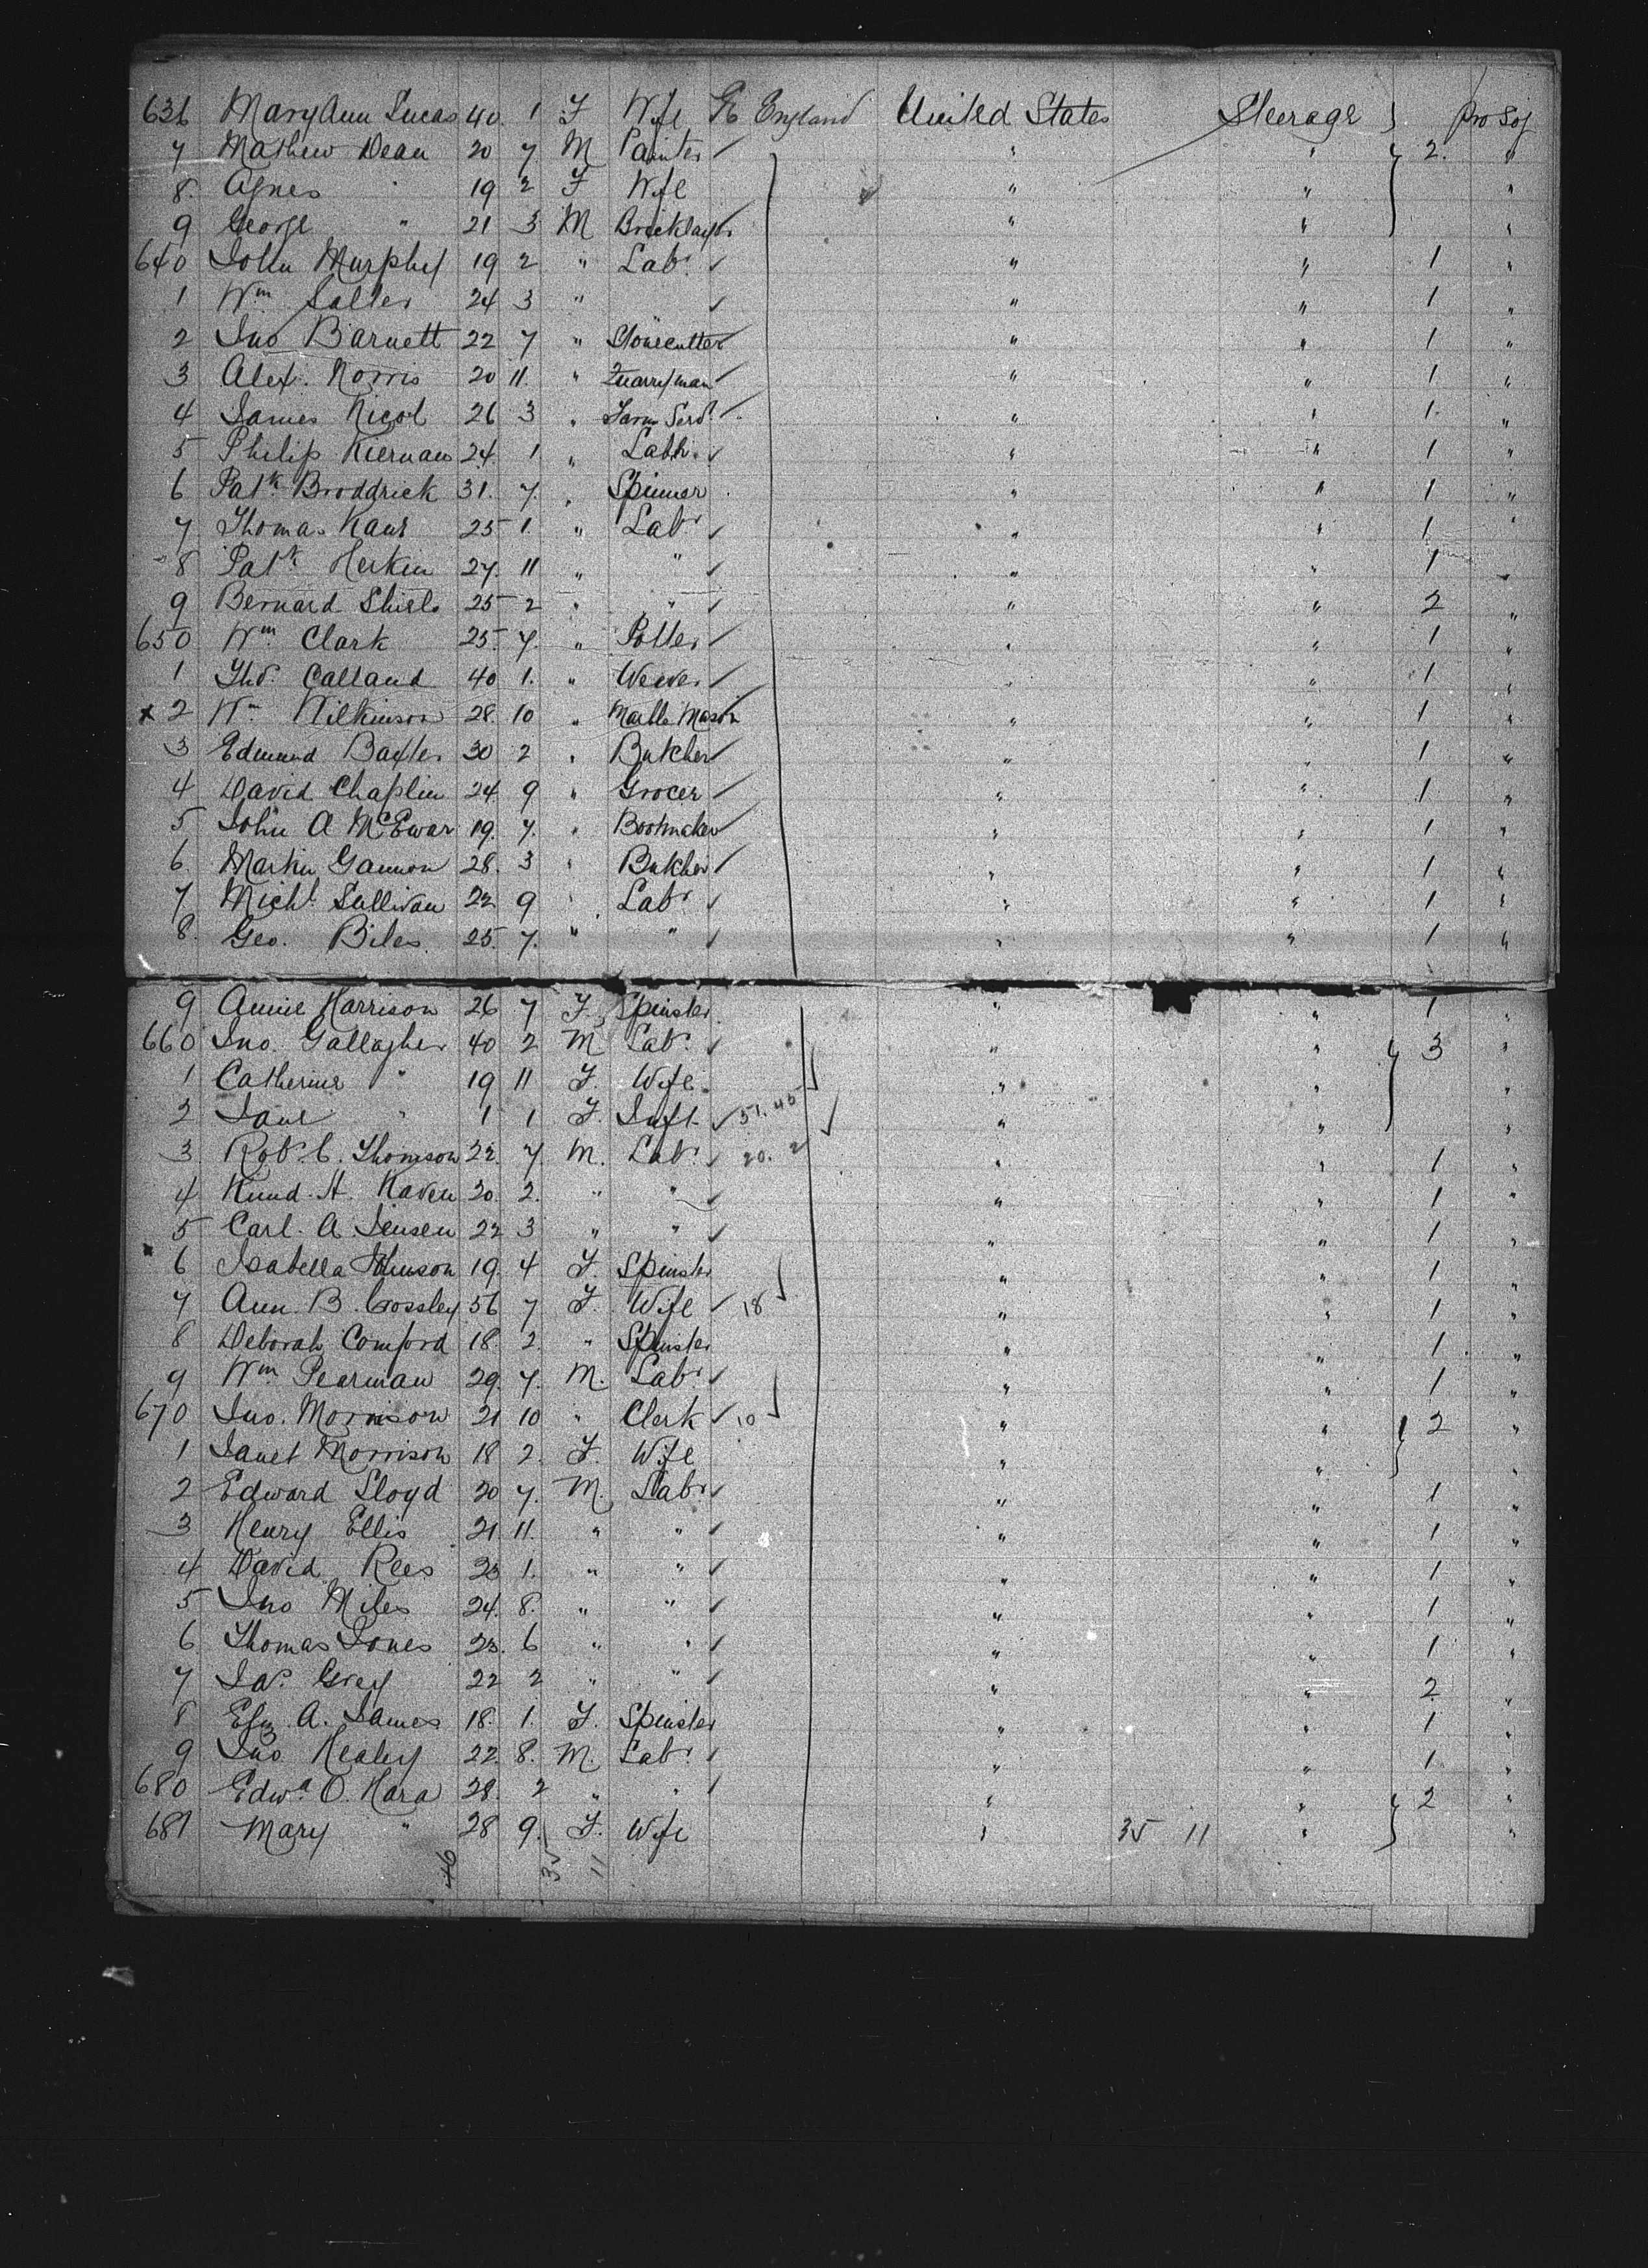 636 Mary Ann Lucas 40. 1 F Wife England United States Steerage } Pro Soj
7 Mathew Dean 20 7 M Painter ✓ " " } 2. "
8. Agnes " 19 2 F Wife " " "
9 George " 21 3 M Bricklayer ✓ " " "
640 John Murphy 19 2 " Labr ✓ " " 1 "
1 Wm Salter 24 3 " ✓ " " 1 "
2 Jno Barnett 22 7 " Stonecutter ✓ " " 1 "
3 Alex. Norris 20 11. " Quarryman ✓ " " 1 "
4 James Nicol 26 3 " Farm Servt ✓ " " 1 "
5 Philip Kiernan 24. 1 " Labr. ✓ " " 1 "
6 Patk Broddrick 31. 7. " Spinner " " 1 "
7 Thomas Kane 25 1. " Labr ✓ " " 1 "
8 Patk Herkin 27. 11 " " ✓ " " 1 "
9 Bernard Shiels 25 2 " " ✓ " " 2 "
650 Wm Clark 25. 7. " Potter ✓ " " 1 "
1 Thos. Calland 40 1. " Weaver ✓ " " 1 "
x 2 Wm Wilkinson 28. 10 " Marble Mason " " 1 "
3 Edmund Baxter 30 2 " Butcher ✓ " " 1 "
4 David Chaplin 24. 9 " Grocer ✓ " " 1 "
5 John A McEwan 19. 7. " Bootmaker ✓ " " 1 "
6. Martin Gannon 28. 3 " Butcher ✓ " " 1 "
7 Michl. Sullivan 22 9 " Labr ✓ " " 1 "
8. Geo. Biles 25. 7. " " ✓ " " 1 "
9 Annie Harrison 26 7 F. Spinster " " 1 "
660 Jno. Gallagher 40 2 M Labr. ✓ " " } 3 "
1 Catherine " 19 11 F. Wife " " "
2 Jane " 1 1 F. Inft ✓ 51.45 ✓ " " "
3. Robt C. Thomson 22. 7. M. Labr. ✓ 20. 2 " " 1 "
4 Knud. H. Raven 20. 2. " " ✓ " " 1 "
5 Carl. A. Jensen 22 3 " " ✓ " " 1 "
6 Isabella Johnson 19. 4 F. Spinster " " 1 "
7 Ann. B. Crossley 56 7 F. Wife ✓ 18 " " 1 "
8 Deborah Comford 18. 2. " Spinster " " 1 "
9 Wm Pearman 29. 7. M. Labr ✓ " " 1 "
670 Jno. Morrison 21 10 " Clerk ✓ 10 " " } 2 "
1 Janet Morrison 18 2. F. Wife " " "
2 Edward Lloyd 20 7. M. Labr ✓ " " 1 "
3 Henry Ellis 21 11. " " ✓ " " 1 "
4 David Rees 23 1. " " ✓ " " 1 "
5 Jno Miles 24. 8. " " ✓ " " 1 "
6 Thomas Jones 23. 6 " " ✓ " " 1 "
7 Jas. Grey 22 2 " " ✓ " " 2 "
8 Eliz. A. James 18. 1. F. Spinster " " 1 "
9 Jno Healey 22. 8. M. Labr. ✓ " " 1 "
680 Edwd O. Hara 28. 2 " " ✓ " " } 2 "
681 Mary " 28 9. F. Wife " 35 11 " "
46 35 11